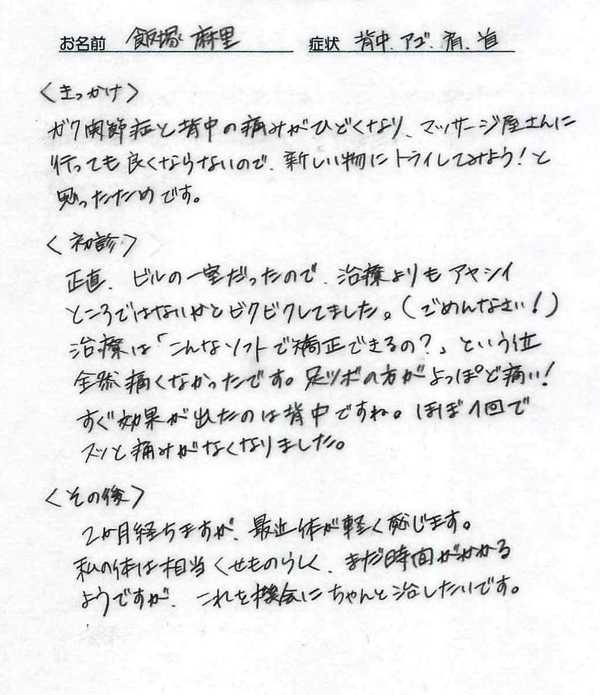 お名前 飯塚 麻里 症状 背中、アゴ、肩、首
〈きっかけ〉
ガク関節症と背中の痛みがひどくなり、マッサージ屋さんに
行っても良くならないので、新しい物にトライしてみよう！と
思ったためです。
〈初診〉
正直、ビルの一室だったので、治療よりもアヤシイ
ところではないかとビクビクしてました。（ごめんなさい！）
治療は「こんなソフトで矯正できるの？」という位
全然痛くなかったです。足ツボの方がよっぽど痛い！
すぐ効果が出たのは背中ですね。ほぼ1回で
スッと痛みがなくなりました。
〈その後〉
2ヶ月経ちますが、最近体が軽く感じます。
私の体は相当くせものらしく、まだ時間がかかる
ようですが、これを機会にちゃんと治したいです。